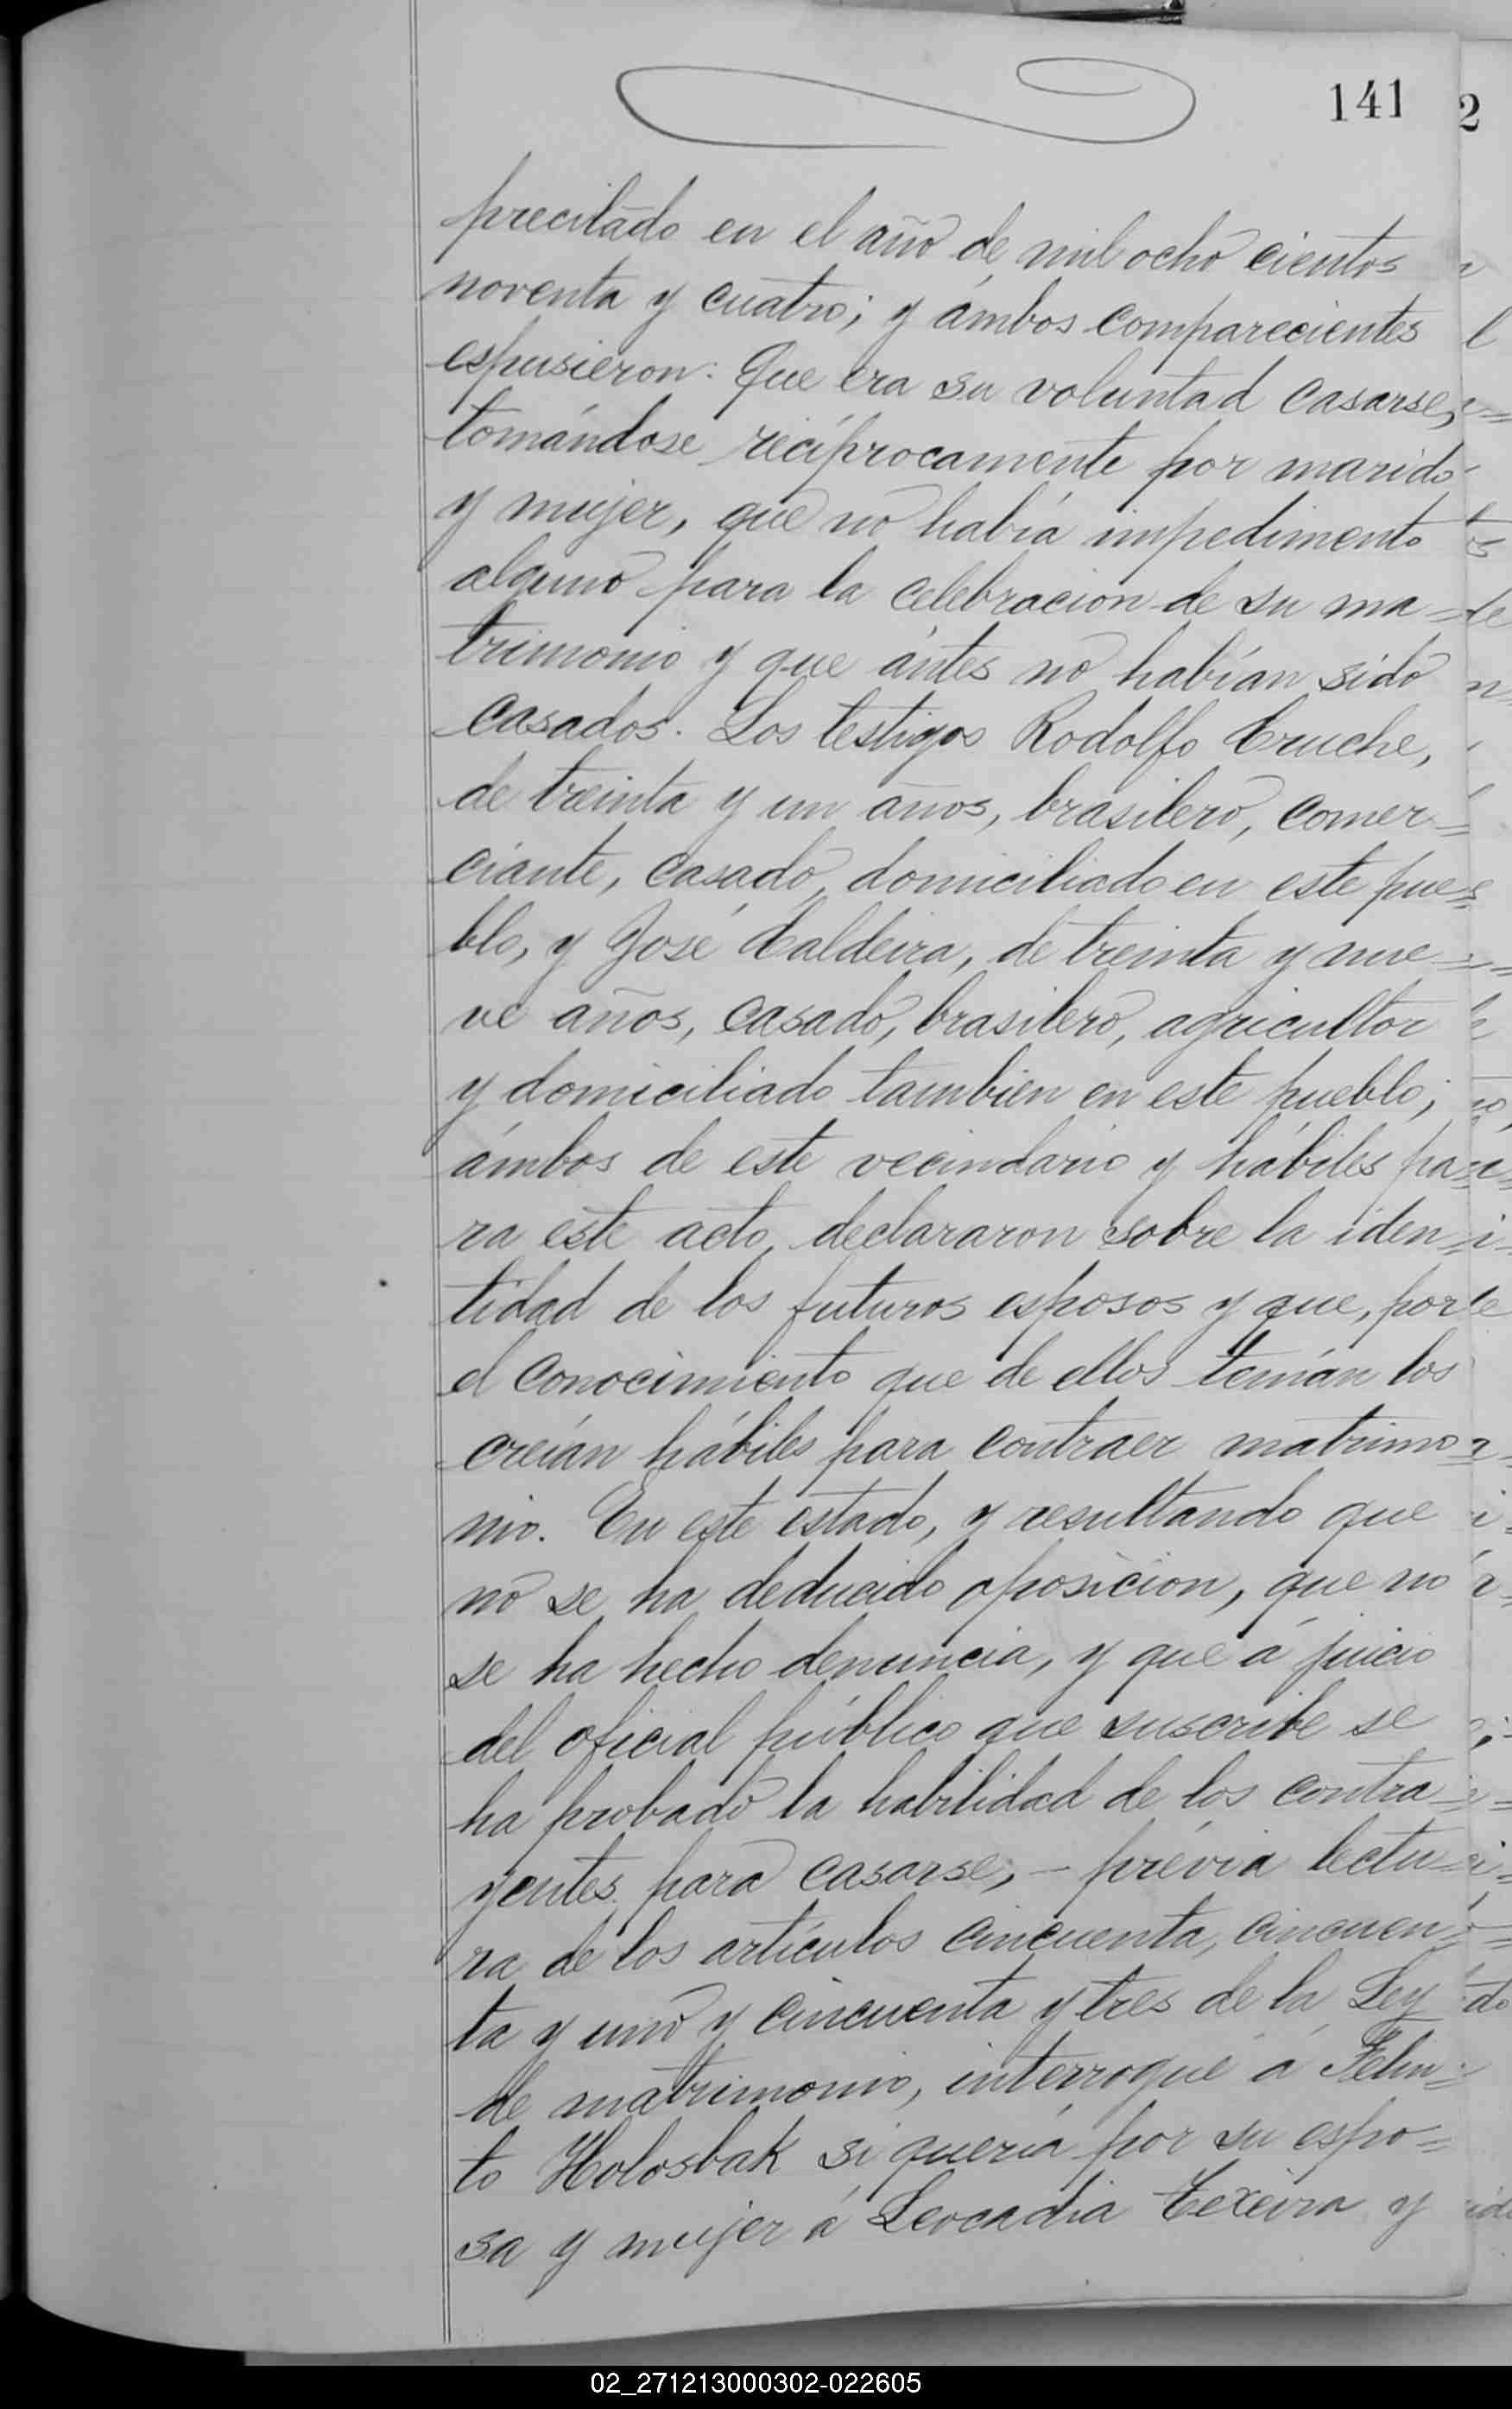 141
2
precitado en el año de mil ocho cientos
noventa y cuatro; y ámbos comparecientes
espusieron: Que era su voluntad casarse,
tomándose recíprocamente por marido
y mujer, que no había impedimento
alguno para la celebracion de su ma=
trimonio y que ántes no habían sido
casados. Los testigos Rodolfo Cruche,
de treinta y un años, brasilero, comer=
ciante, casado, domiciliado en este pue=
blo, y José Caldeira, de treinta y nue=
ve años, casado, brasilero, agricultor
y domiciliado tambien en este pueblo;
ámbos de este vecindario y hábiles pa=
ra este acto, declararon sobre la iden=
tidad de los futuros esposos y que, por
el conocimiento que de ellos tenían los
creían hábiles para contraer matrimo=
nio. En este estado, y resultando que
no se ha deducido oposicion, que no
se ha hecho denuncia, y que á juicio
del oficial público que suscribe se
ha probado la habilidad de los contra=
yentes para casarse, - prévia lectu=
ra de los artículos cincuenta, cincuen=
ta y uno y cincuenta y tres de la Ley
de matrimonio, interrogué á Felin=
to Holosbak si quería por su espo=
sa y mujer á Leocadia Texeira y
02_271213000302-022605